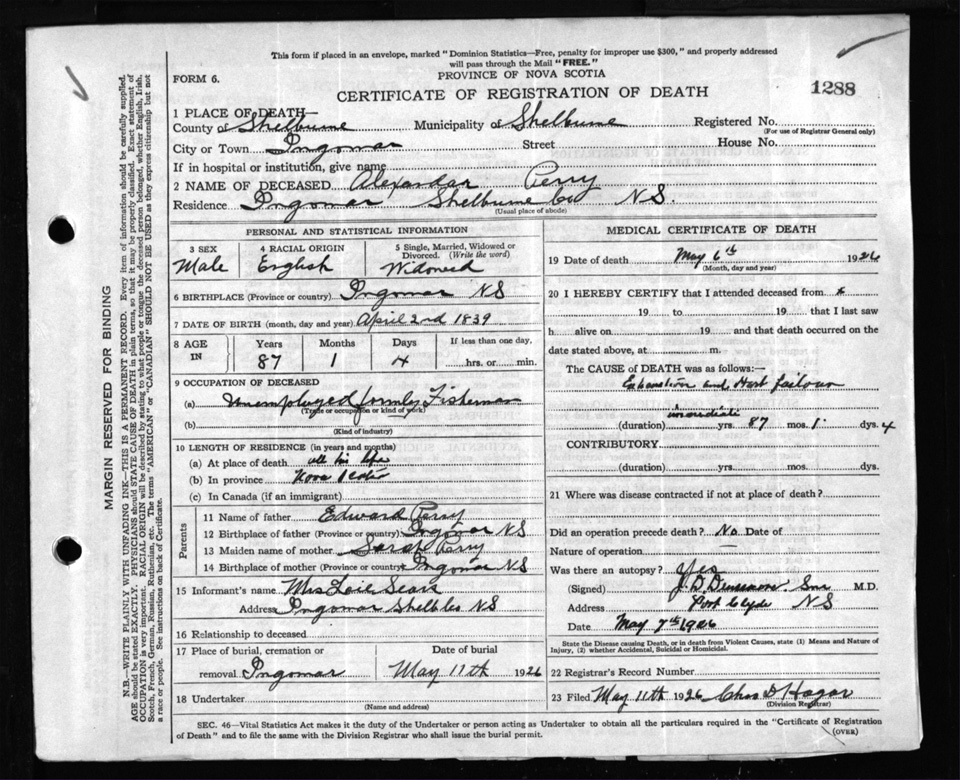 This form if placed in an envelope, marked "Dominion Statistics—Free, penalty for improper use $300," and properly addressed
will pass through the Mail "FREE."
FORM 6.
PROVINCE OF NOVA SCOTIA
CERTIFICATE OF REGISTRATION OF DEATH
1288
1 PLACE OF DEATH—
County of Shelburne Municipality of Shelburne Registered No.
(For use of Registrar General only)
City or Town Ingomar Street House No.
If in hospital or institution, give name
2 NAME OF DECEASED Alexander Perry
Residence Ingomar Shelburne Co NS.
(Usual place of abode)
PERSONAL AND STATISTICAL INFORMATION
3 SEX
Male
4 RACIAL ORIGIN
English
5 Single, Married, Widowed or
Divorced. (Write the word)
Widowed
6 BIRTHPLACE (Province or country) Ingomar NS
7 DATE OF BIRTH (month, day and year) April 2nd 1839
8 AGE
IN
Years
87
Months
1
Days
4
If less than one day,
hrs. or min.
9 OCCUPATION OF DECEASED
(a) Unemployed formly Fisherman
(Trade or occupation or kind of work)
(b)
(Kind of industry)
10 LENGTH OF RESIDENCE (in years and months)
(a) At place of death all his life
(b) In province Nova Scotia
(c) In Canada (if an immigrant)
Parents
11 Name of father Edward Perry
12 Birthplace of father (Province or country) Ingomar NS
13 Maiden name of mother Sarah Perry
14 Birthplace of mother (Province or country) Ingomar NS
15 Informant's name Mrs
Address Ingomar Shelb Co NS
16 Relationship to deceased
17 Place of burial, cremation or
removal Ingomar
Date of burial
May 11th 1926
18 Undertaker
(Name and address)
MEDICAL CERTIFICATE OF DEATH
19 Date of death May 6th 1926
(Month, day and year)
20 I HEREBY CERTIFY that I attended deceased from
19 to 19 that I last saw
h alive on 19 and that death occurred on the
date stated above, at m.
The CAUSE OF DEATH was as follows:—
and Hart failour
immediate
(duration) yrs. 87 mos. 1 dys. 4
CONTRIBUTORY
(duration) yrs. mos. dys.
21 Where was disease contracted if not at place of death?
Did an operation precede death? No Date of
Nature of operation —
Was there an autopsy? Yes
(Signed) J. D. Densmore M.D.
Address Port Clyde NS
Date May 7th 1926
State the Disease causing Death, or in death from Violent Causes, state (1) Means and Nature of
Injury, (2) whether Accidental, Suicidal or Homicidal.
22 Registrar's Record Number
23 Filed May 11th 1926 Chas D Hagar
(Division Registrar)
SEC. 46—Vital Statistics Act makes it the duty of the Undertaker or person acting as Undertaker to obtain all the particulars required in the "Certificate of Registration
of Death" and to file the same with the Division Registrar who shall issue the burial permit.
(OVER)
MARGIN RESERVED FOR BINDING
N.B.—WRITE PLAINLY WITH UNFADING INK—THIS IS A PERMANENT RECORD. Every item of information should be carefully supplied.
AGE should be stated EXACTLY. PHYSICIANS should STATE CAUSE OF DEATH in plain terms, so that it may be properly classified. Exact statement of
OCCUPATION is very important. RACIAL ORIGIN will be described by stating to what people or tongue the deceased person belonged, whether English, Irish,
Scotch, French, German, Russian, Ruthenian, etc. The terms "AMERICAN" or "CANADIAN" SHOULD NOT BE USED as they express citizenship but not
a race or people. See instructions on back of Certificate.